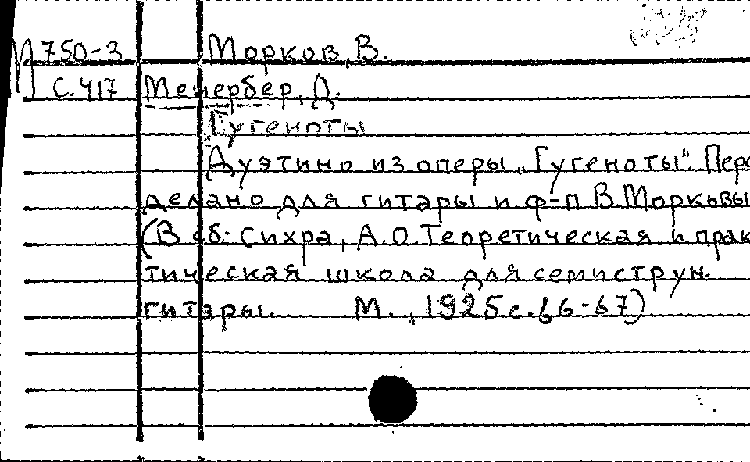 М 750-3 Морков, В.
С.417 Мейербер, Д.
Гугеноты
Дуэтино из оперы „Гугеноты". Пере
делано для гитары и ф-п В. Морковы
(В сб: Сихра, А.О. Теоретическая и прак
тическая школа для семиструн.
гитары. М., 1925 с. 66-67)